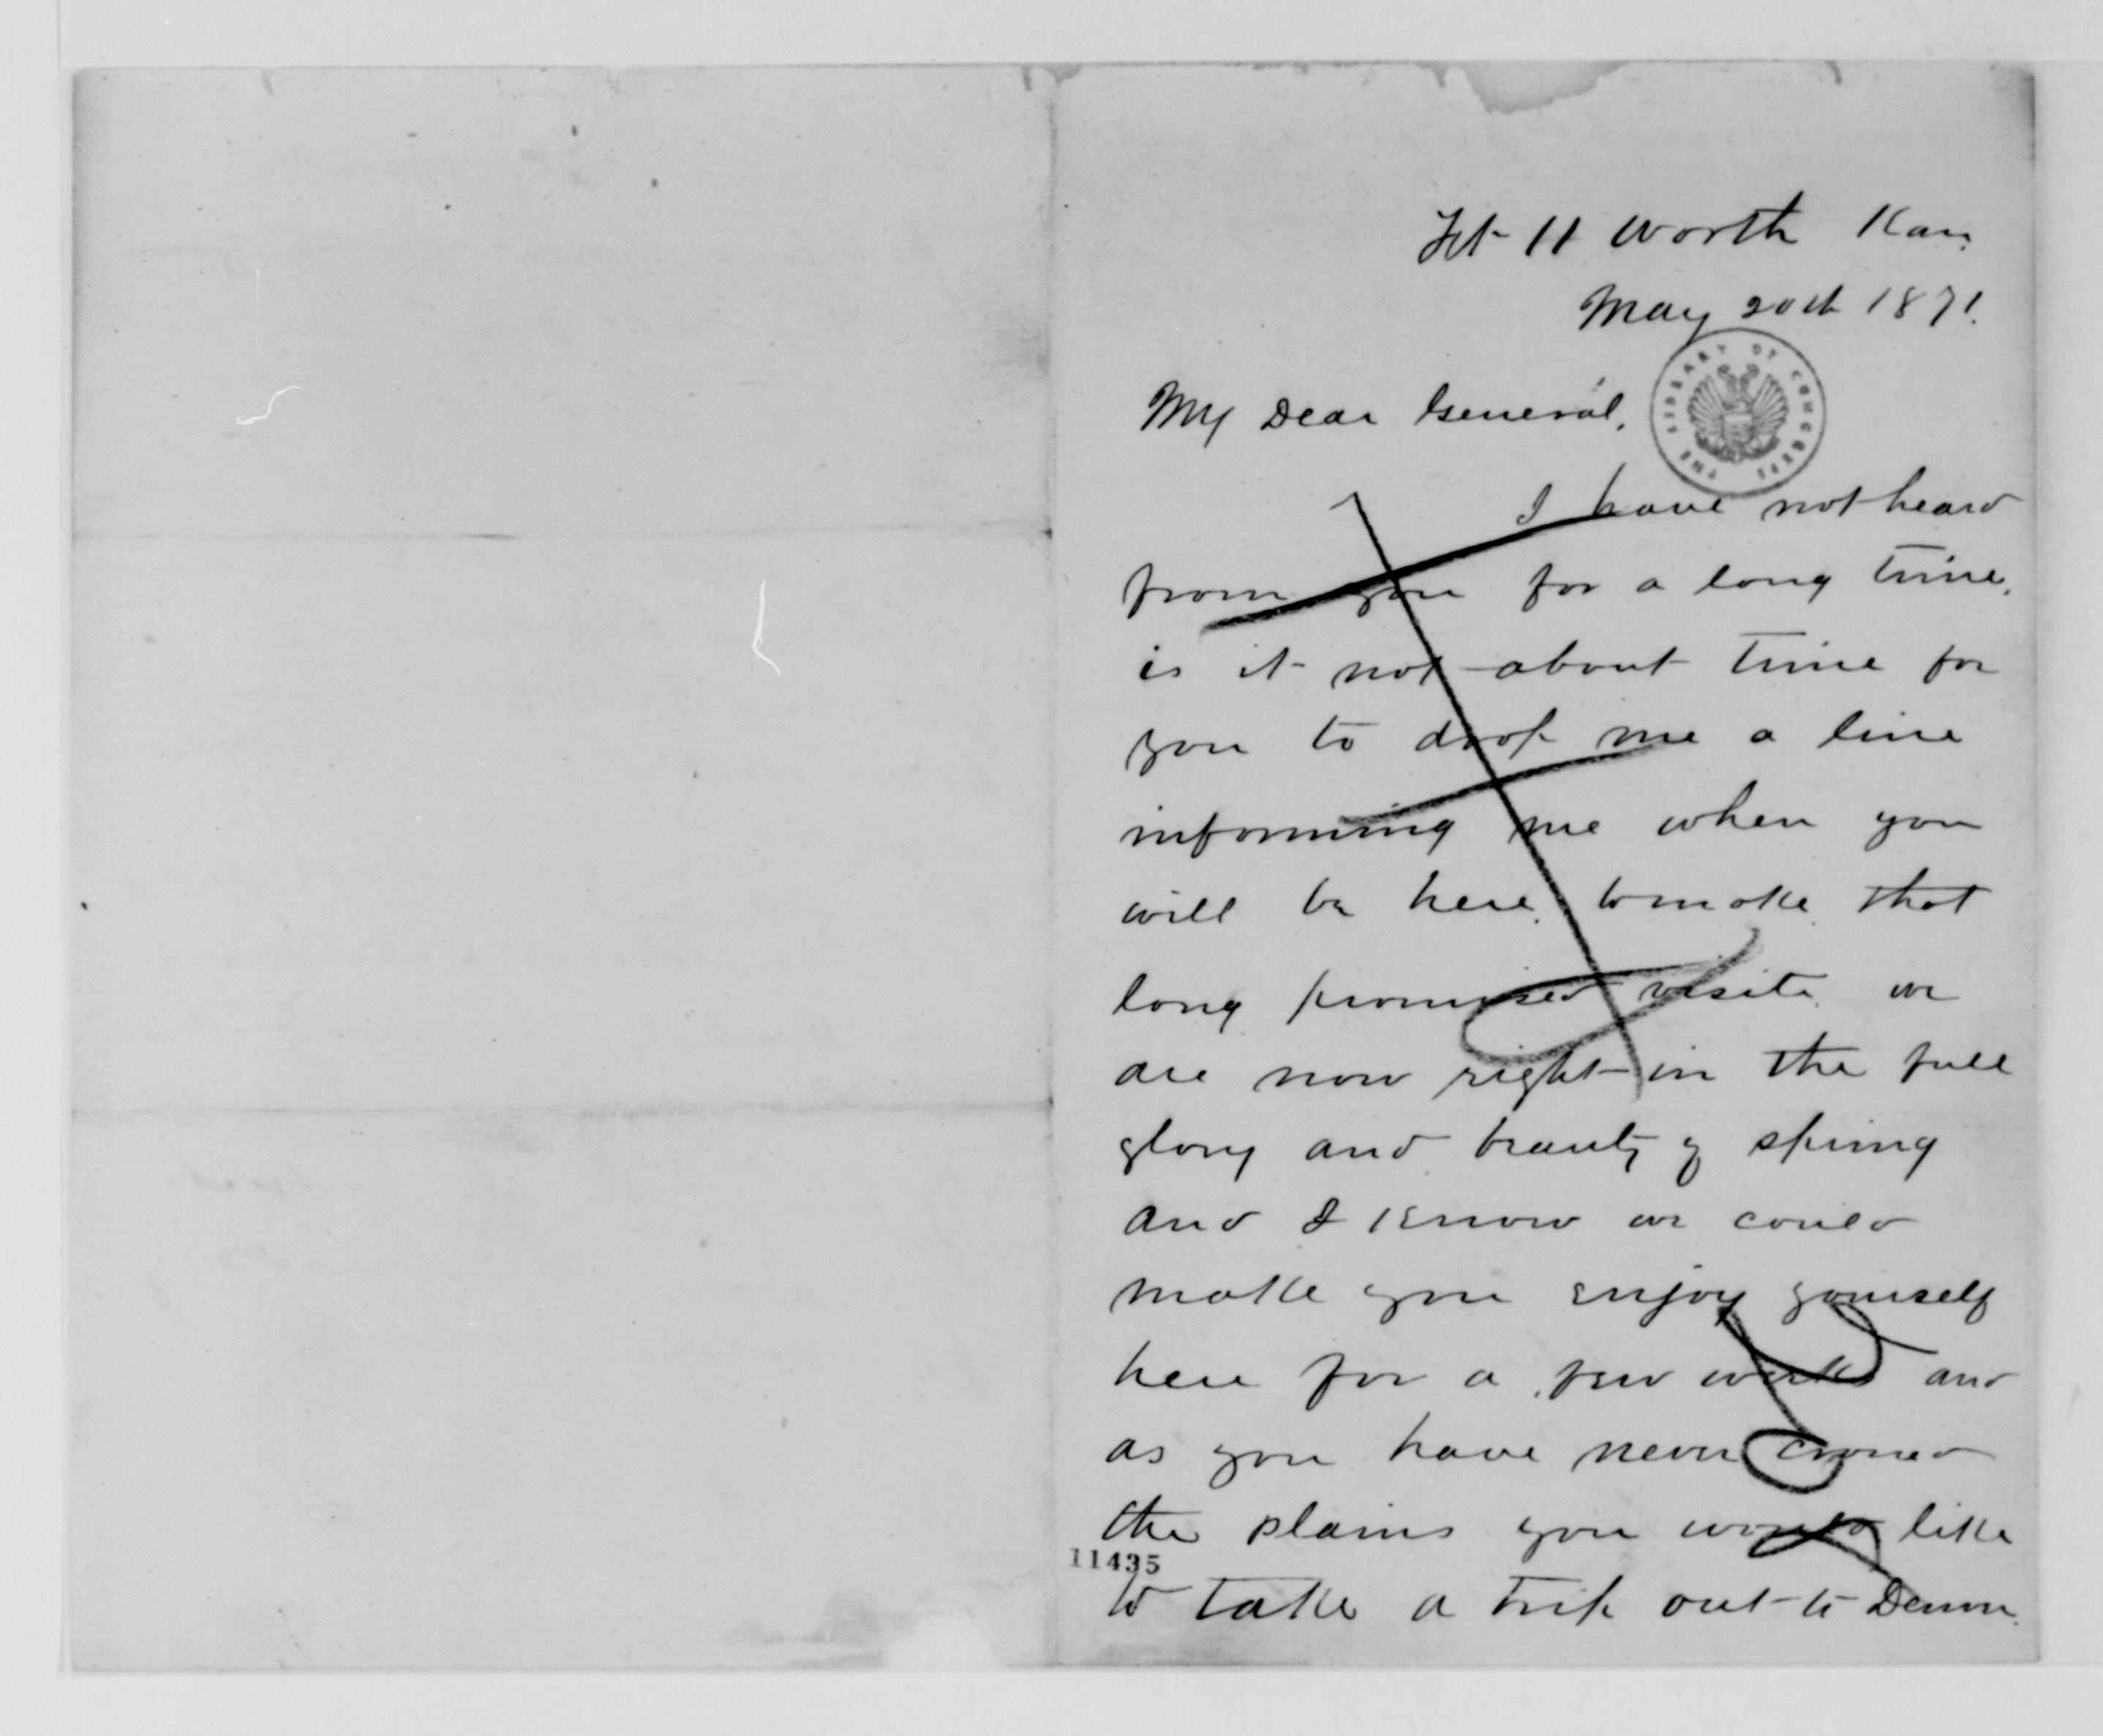 Ft- 11 Worth Kan.
May 20th 1871.
My Dear General,
THE LIBRARY OF CONGRESS
I have not heard
from you for a long time,
is it not about time for
you to drop me a line
informing me when you
will be here. to make that
long promised visit. we
are now right in the full
glory and beauty of spring
and I know we could
make you enjoy yourself
here for a few weeks and
as you have never crossed
the plains you would like
11435
to take a trip out to Denver.